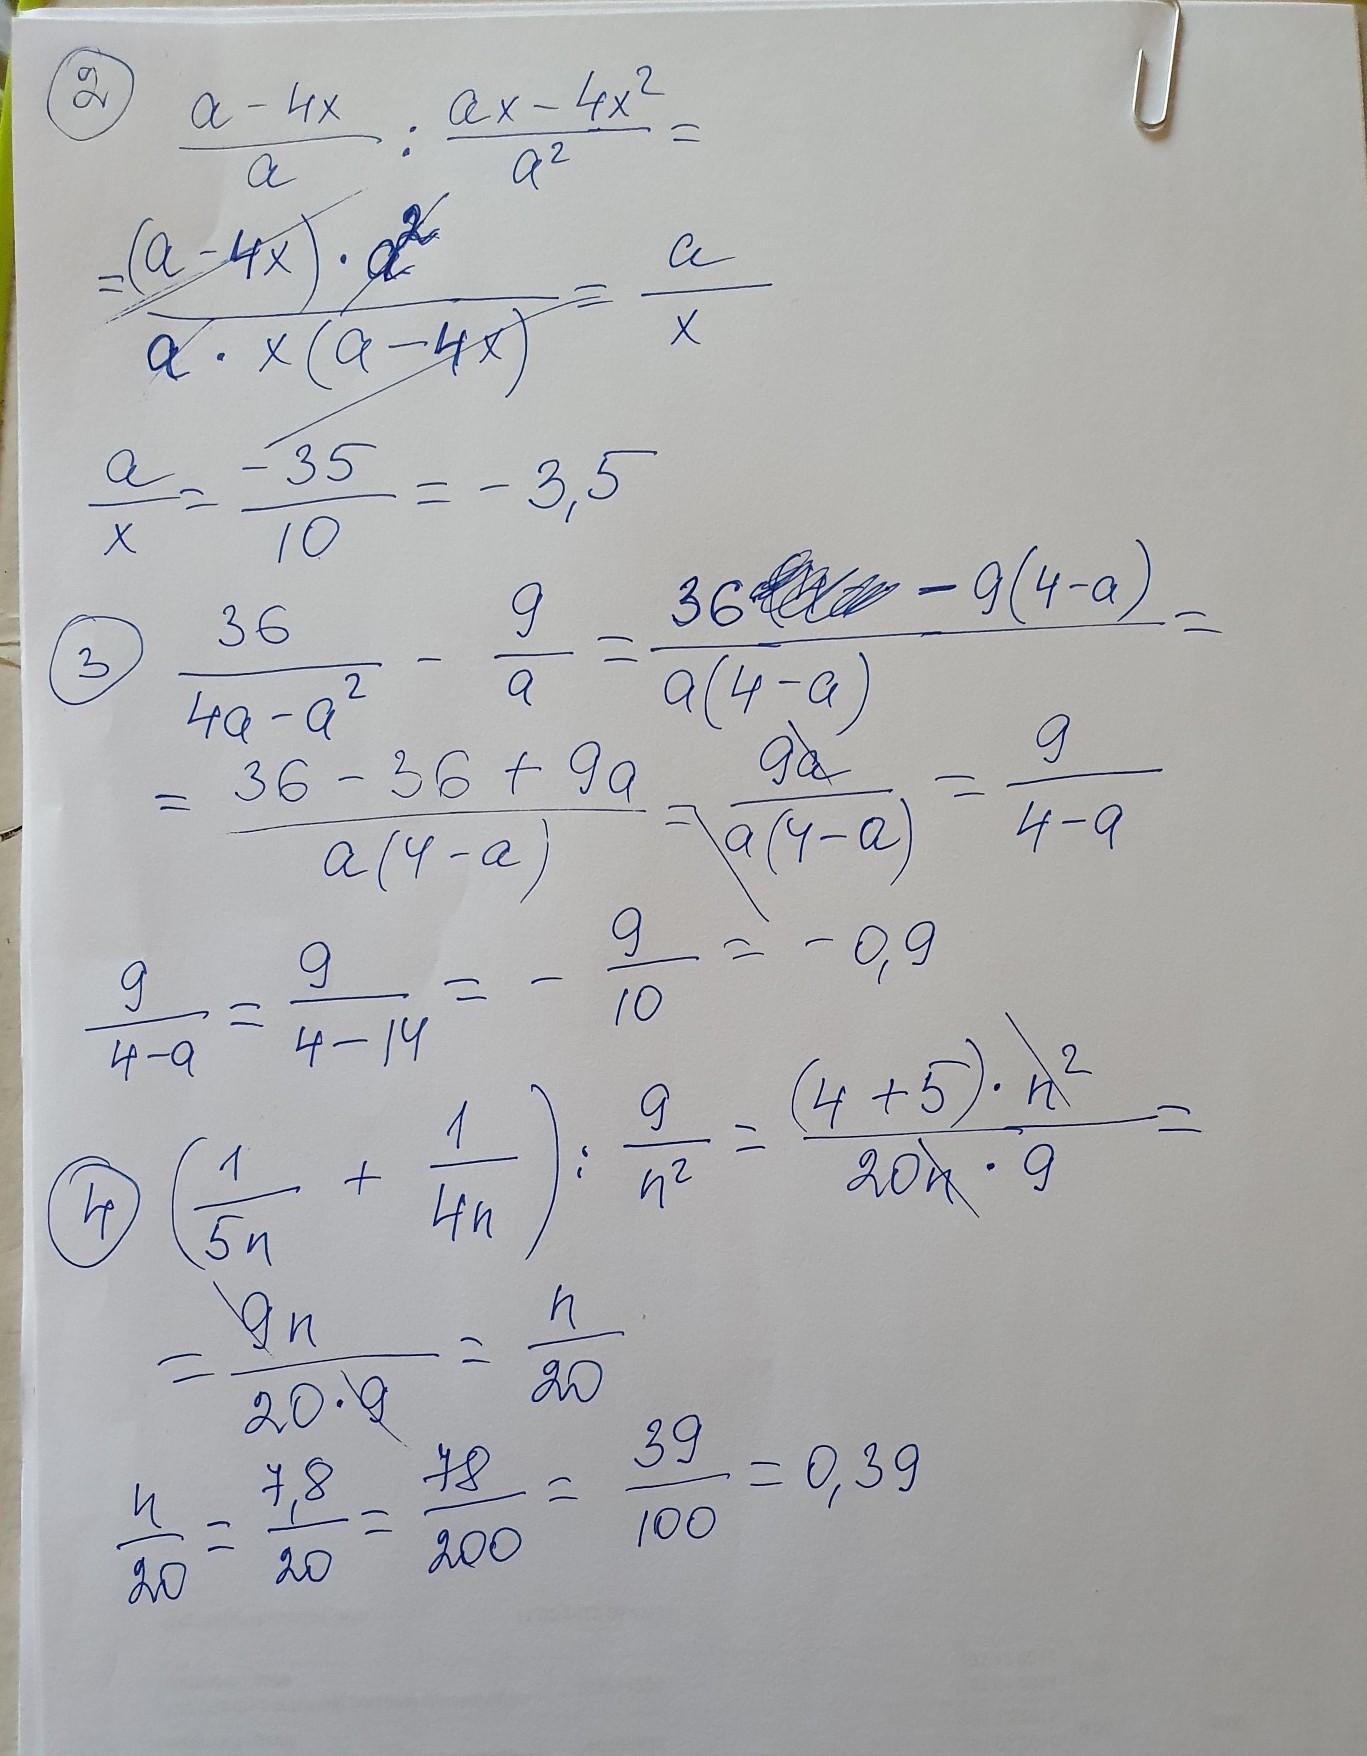 2 (a - 4x)/a : (ax - 4x²)/a² =
= ((a - 4x) · a²)/(a · x(a - 4x)) = a/x
a/x = -35/10 = -3,5
3 36/(4a - a²) - 9/a = (36 - 9(4-a))/(a(4-a)) =
= (36 - 36 + 9a)/(a(4-a)) = 9a/(a(4-a)) = 9/(4-a)
9/(4-a) = 9/(4-14) = - 9/10 = -0,9
4 (1/5n + 1/4n) : 9/n² = ((4+5) · n²)/(20n · 9) =
= 9n/(20·9) = n/20
n/20 = 7,8/20 = 78/200 = 39/100 = 0,39